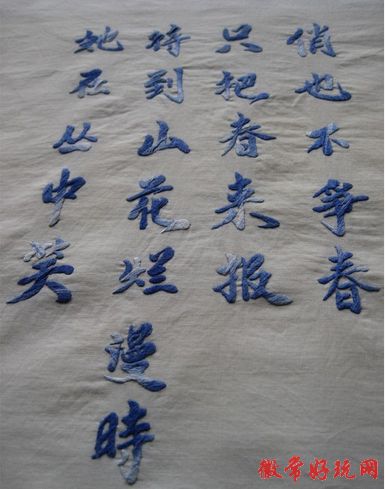 俏也不争春
只把春来报
待到山花烂漫時
她在丛中笑
徽常好玩网